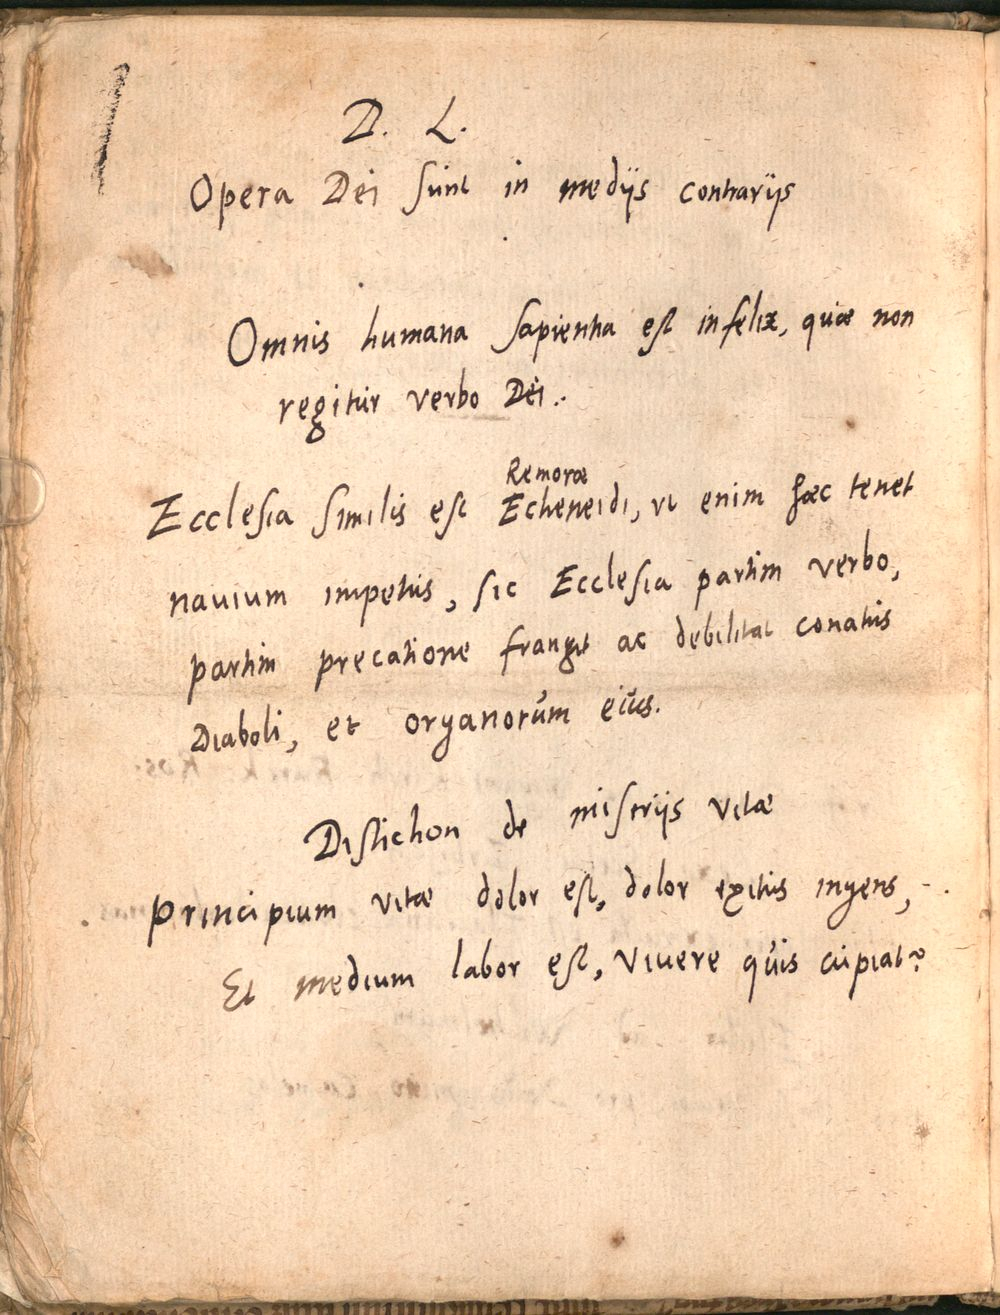 D. L.
Opera Dei sunt in medijs contrarijs
Omnis humana sapientia est infelix, quæ non
regitur verbo Dei.
Remoræ
Ecclesia similis est Echeneidi, ut enim hæc tenet
nauium impetus, sic Ecclesia partim verbo,
partim precatione frangit ac debilitat conatus
Diaboli, et organorum eius.
Distichon de miserijs vitæ
Principium vitæ dolor est, dolor exitus ingens,
Et medium labor est, vivere quis cupiat?